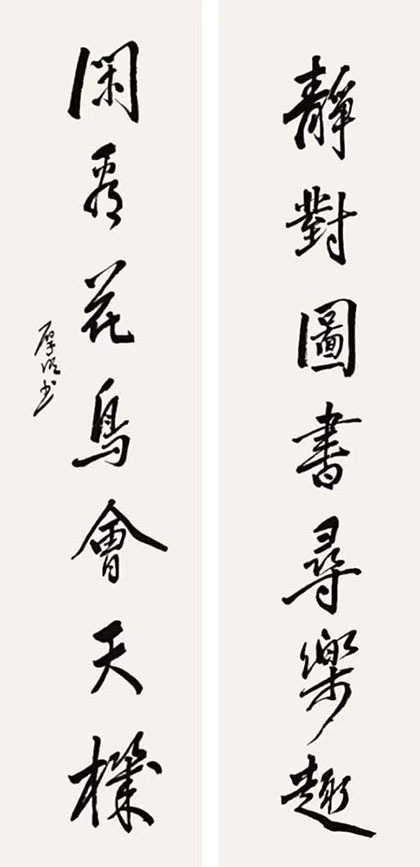 靜對圖書尋樂趣
閑看花鳥會天機